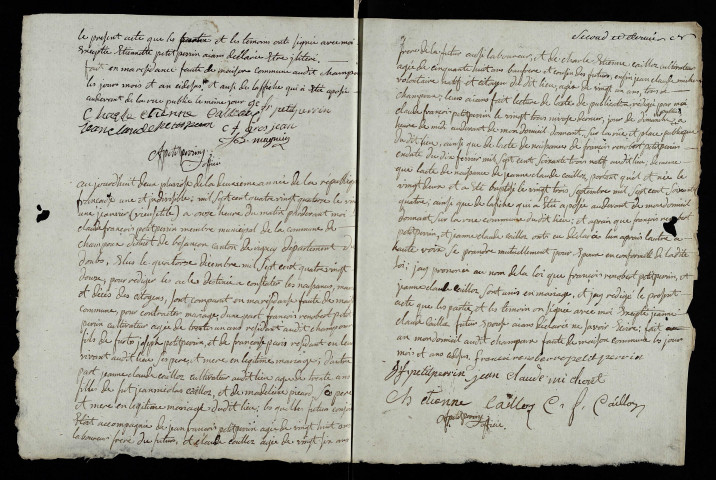 le present acte que le et les temoins ont signé avec moi
Excepté Etiennette petitperrin aiant declarer etre iliteré
fait en ma residance faute de maison commune audit champou
les jours mois et an cidesus, et aussi de laffiche qui à été apposé
audevant de la rue publique le meme jour
Charle etienne Cailloz petitperrin
Jean Claude C F gros jean
magnin
Apetitperrin
oficié
aujourdhuit deux pluvose de la deuxieme année de la republique
francaise une et indivisible, mil sept cent quatre vingt quatorze le vingt
une janvier (vieu stile) a onze heure du matin pardevant moi
claude françois petitperrin membre municipal de la commune de
champoux district de besançon canton de departement du
doubs, Elus le quatorze decembre mil sept cent quatre vingt
douze, pour rediger les actes destiné a constater les naisances, mariage
et décés des citoyens, sont comparut en ma residance faute de maison
commune, pour contracter mariage, d'une part françois renobert petit
perrin cultivateur agé de trente un ans residant audit champoux
fils de futs joseph petitperrin, et de françoise residant en leur
vivant audit lieu, ses pere et mere en legitime mariage; D'autre
part jeanne claude cailloz cultivatice audit lieu agée de trente ans
fille de fut jean nicolas cailloz, et de madeleine picard, ses pere
et mere en legitime mariage dudit lieu, les quel futur conjoin
etoit accompagné de jean françois petitperrin agé de vingt huit ans
laboureur frere du futur, et claude caillez agé de vingt six ans
second et dernier
frere de la futur aussi laboureur, et de charle Etienne cailloz cultivateur
agé de cinquante huit ans et cousin des futurs, enfin jean claude michoret
volontaire natif et citoyen dudit lieu, agé de vingt un ans, tous de
champoux; leur aiant fait lecture de lacte de publication redigé par moi
claude françois petitperrin le vingt trois nivose dernier, jour de dimanche, à
heure de midi audevant de mon domicil donnant, sur la rue et place publique
dudit lieu; ainsi que de lacte de naissance de françois renobert petitperrin
en date du dix fevrier mil sept cent soixante trois natif dudit lieu, de meme
que lacte de naissance de jeanne claude cailloz portant quil et née le
vingt deux et a été baptisé le vingt trois septembre mil sept cent soixante
quatre; ainsi que de lafiche qui a été aposée audevant de mon domicil
donnant, sur la rue commune dudit lieu; et aprés que françois renobert
petitperrin, et jeanne claude cailloz ont eu declarés l'un aprés lautre a
haute voix se prendre mutuellement pour Epoux en conformité de la dite
loi; jay prononcé au nom de la loi que françois renobert petitperrin, et
jeanne claude cailloz sont unis en mariage, et jay redigé le present
acte que la partie, et les temoin on signée avec moi Excepté jeanne
claude Cailloz futur epouse aiant declarée ne savoir ecrire; fait
en mon domicil audit champoux faute de maison commune les jour
mois et ans cidesus, francois renobert petitperrin
petitperrin jean claude michoret
Ch etienne Cailloz C. f. Cailloz
Apetitperrin
oficié